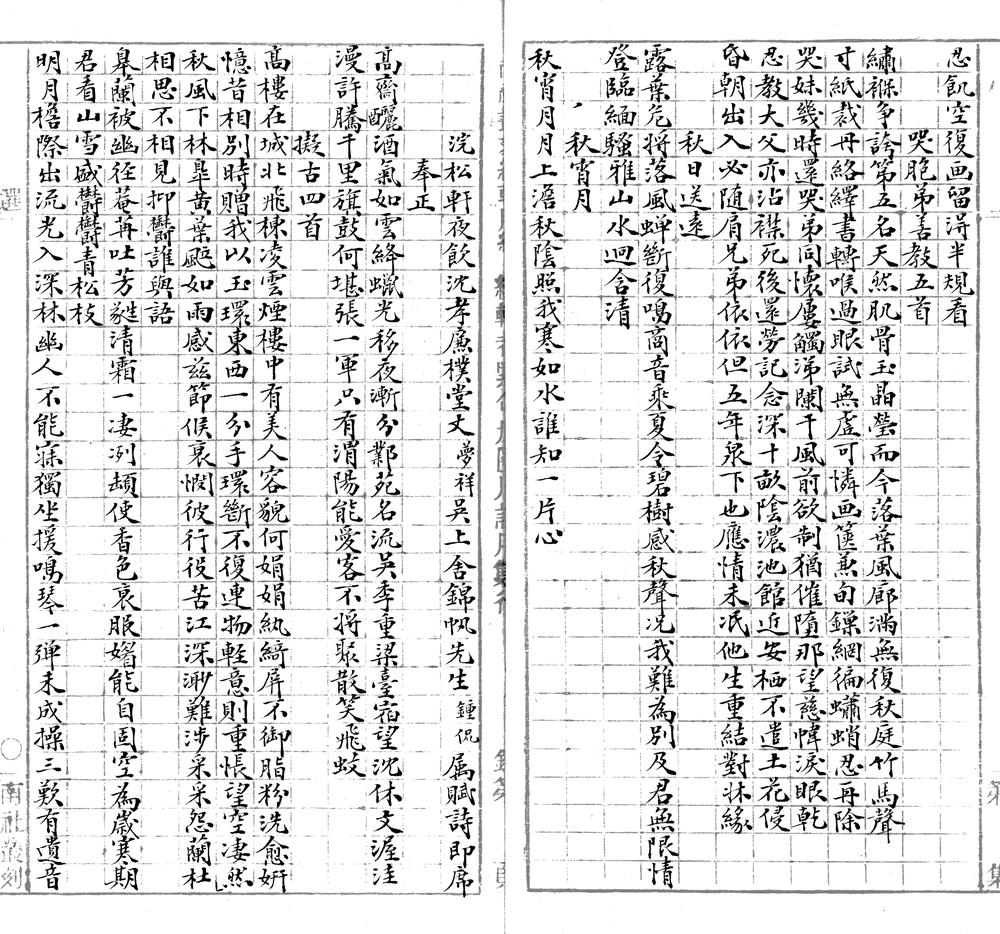 忍飢空復画留得半規看
哭胞弟善教五首
繡褓争誇第五名天然肌骨玉晶瑩而今落葉風廊滿無復秋庭竹馬聲
寸紙裁丹絡繹書轉喉過眼試無虛可憐画篋兼旬鏁網徧蠨蛸忍再除
哭妹幾時還哭弟同懷屢觸涕闌干風前欲制猶催墮那望慈幃淚眼乾
忍教大父亦沾襟死後還勞記念深十畝陰濃池館近安栖不遣土花侵
昏朝出入必随肩兄弟依依但五年泉下也應情未泯他生重結對牀緣
秋日送遠
露葉危将落風蟬斷復鳴高音乘夏令碧樹感秋聲况我難為別及君無限情
登臨緬騷雅山水迥含清
秋宵月
秋宵月月上澹秋陰照我寒如水誰知一片心
浣松軒夜飲沈孝廉樸堂丈夢祥吳上舍錦帆先生鍾侃属賦詩即席
奉正
高齋釃酒氣如雲絡蠟光移夜漸分鄴苑名流吳季重梁臺宿望沈休文渥洼
漫許騰千里旗鼓何堪張一軍只有渭陽能愛客不将聚散笑飛蚊
擬古四首
高樓在城北飛棟凌雲煙樓中有美人容貌何娟娟紈綺屏不御脂粉洗愈妍
憶昔相別時贈我以玉環東西一分手環斷不復連物軽意則重悵望空凄然
秋風下林皐黄葉飈如雨感兹節候衰憫彼行役苦江深渺難涉采采怨蘭杜
相思不相見抑欝誰與語
皋蘭被幽径菴苒吐芳蕤清霜一凄冽頡使香色衰服媚能自固空為歳寒期
君看山雪盛欝欝青松枝
明月檐際出流光入深林幽人不能寐獨坐援鳴琴一弾未成操三歎有遺音
選
南社叢刻
集